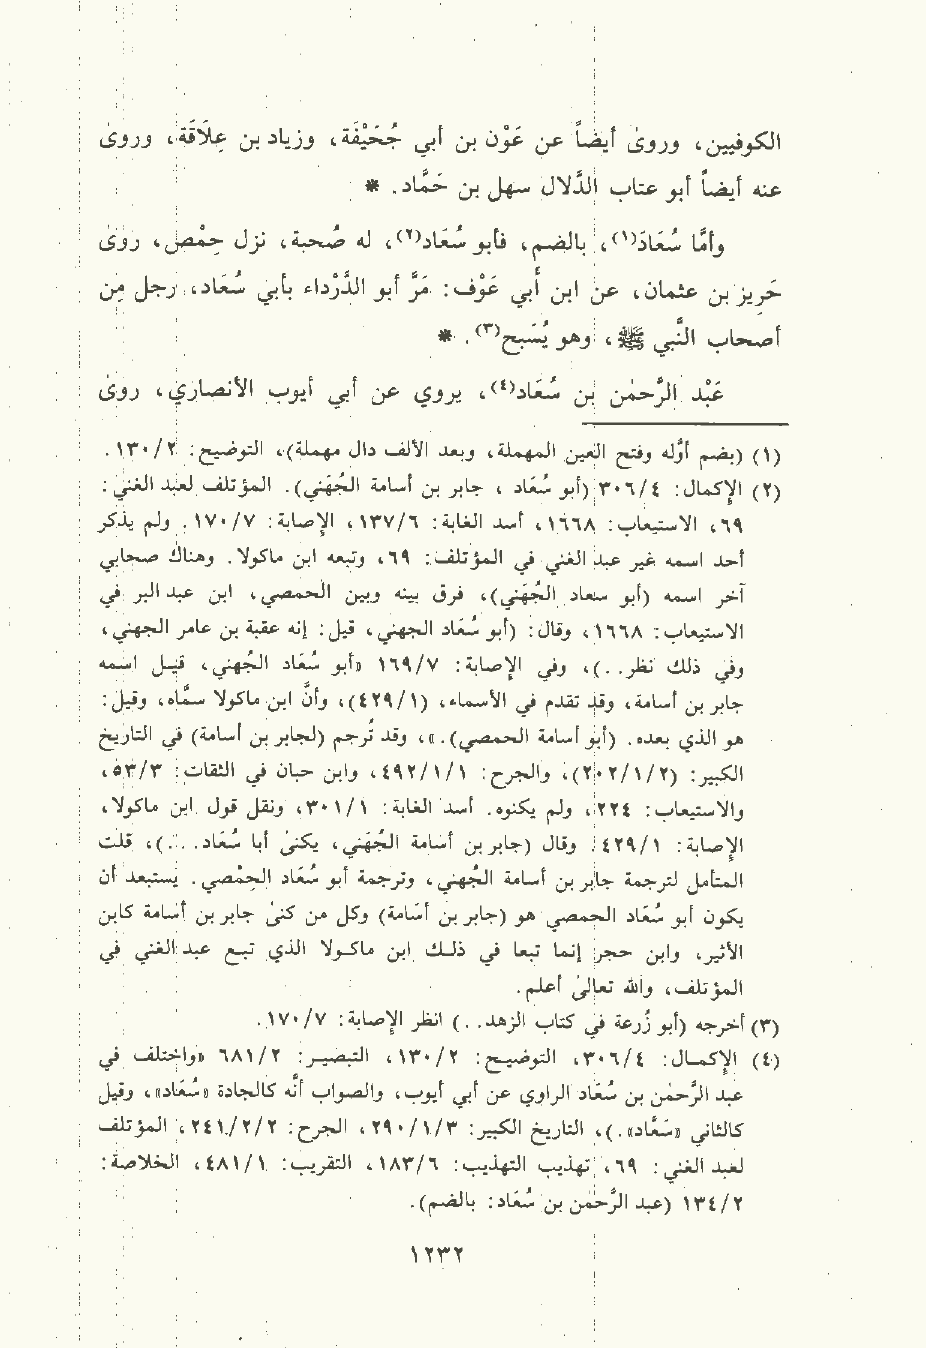 الكوفيين، وروىٰ أيضاً عن عَوْن بن أبي جُحَيْفَة، وزياد بن عِلَاقَة، وروىٰ
عنه أيضاً أبو عتاب الدَّلال سهل بن حَمَّاد. *
وأمَّا سُعَادَ(١)، بالضم، فأبو سُعَاد(٢)، له صُحبة، نزل حِمْص، روىٰ
حَرِيز بن عثمان، عن ابن أبي عَوْف: مَرَّ أبو الدَّرْداء بأبي سُعَاد، رجل مِن
أصحاب النَّبي ﷺ، وهو يُسَبح(٣). *
عَبْد الرَّحمٰن بن سُعَاد(٤)، يروي عن أبي أيوب الأنصاري، روىٰ
(١) (بضم أوّله وفتح العين المهملة، وبعد الألف دال مهملة)، التوضيح: ١٣٠/٢.
(٢) الإكمال: ٣٠٦/٤ (أبو سُعَاد، جابر بن أسامة الجُهَني). المؤتلف لعبد الغني:
٦٩، الاستيعاب: ١٦٦٨، أسد الغابة: ١٣٧/٦، الإصابة: ١٧٠/٧. ولم يذكر
أحد اسمه غير عبد الغني في المؤتلف: ٦٩، وتبعه ابن ماكولا. وهناك صحابي
آخر اسمه (أبو سعاد الجُهَني)، فرق بينه وبين الحمصي، ابن عبد البر في
الاستيعاب: ١٦٦٨، وقال: (أبو سُعَاد الجهني، قيل: إنه عقبة بن عامر الجهني،
وفي ذلك نظر..)، وفي الإصابة: ١٦٩/٧ «أبو سُعَاد الجُهني، قيل اسمه
جابر بن أسامة، وقد تقدم في الأسماء، (٤٢٩/١)، وأنَّ ابن ماكولا سمَّاه، وقيل:
هو الذي بعده. (أبو أسامة الحمصي).»، وقد تُرجم (لجابر بن أسامة) في التاريخ
الكبير: (٢٠٢/١/٢)، والجرح: ٤٩٢/١/١، وابن حبان في الثقات: ٥٣/٣،
والاستيعاب: ٢٢٤، ولم يكنوه. أسد الغابة: ٣٠١/١، ونقل قول ابن ماكولا،
الإصابة: ٤٢٩/١. وقال (جابر بن أسامة الجُهَني، يكنىٰ أبا سُعَاد. ..)، قلت
المتأمل لترجمة جابر بن أسامة الجُهني، وترجمة أبو سُعَاد الحمْصي. يستبعد أن
يكون أبو سُعَاد الحمصي هو (جابر بن أسَامة) وكل من كنىٰ جابر بن أسامة كابن
الأثير، وابن حجر إنما تبعا في ذلك ابن ماكولا الذي تبع عبد الغني في
المؤتلف، والله تعالىٰ أعلم.
(٣) أخرجه (أبو زُرعة في كتاب الزهد..) انظر الإصابة: ١٧٠/٧.
(٤) الإكمال: ٣٠٦/٤، التوضيح: ١٣٠/٢، التبصير: ٦٨١/٢ «واختلف في
عبد الرَّحمٰن بن سُعَاد الراوي عن أبي أيوب، والصواب أنَّه كالجادة «سُعَاد»، وقيل
كالثاني «سَعَّاد».)، التاريخ الكبير: ٢٩٠/١/٣، الجرح: ٢٤١/٢/٢، المؤتلف
لعبد الغني: ٦٩، تهذيب التهذيب: ١٨٣/٦، التقريب: ٤٨١/١، الخلاصة:
١٣٤/٢ (عبد الرَّحمٰن بن سُعَاد: بالضم).
١٢٣٢